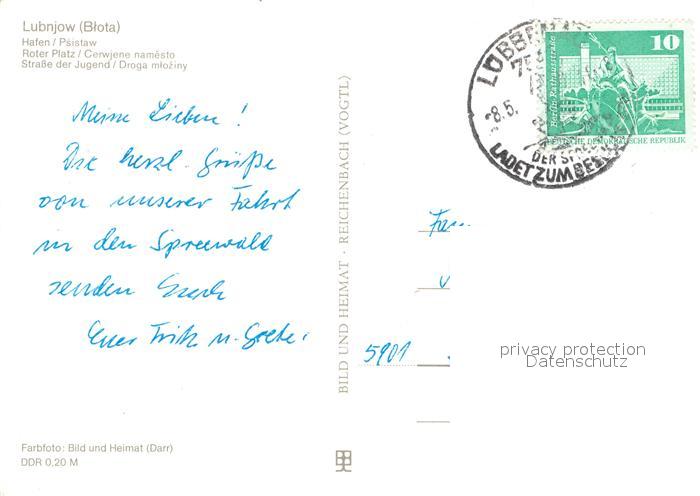 Lubnjow (Błota)
Hafen / Pśistaw
Roter Platz / Cerwjene naměsto
Straße der Jugend / Droga młoźiny
Meine Lieben!
Die herzl. Grüße
von unserer Fahrt
in den Spreewald
senden Euch
Eure Fritz u. Grete.
Farbfoto: Bild und Heimat (Darr)
DDR 0,20 M
BILD UND HEIMAT · REICHENBACH (VOGTL)
LÜBBENAU
8.5.
DER SPREE
LADET ZUM BESUCH
10
Berlin, Rathausstraße
DEUTSCHE DEMOKRATISCHE REPUBLIK
Fam.
5901
privacy protection
Datenschutz